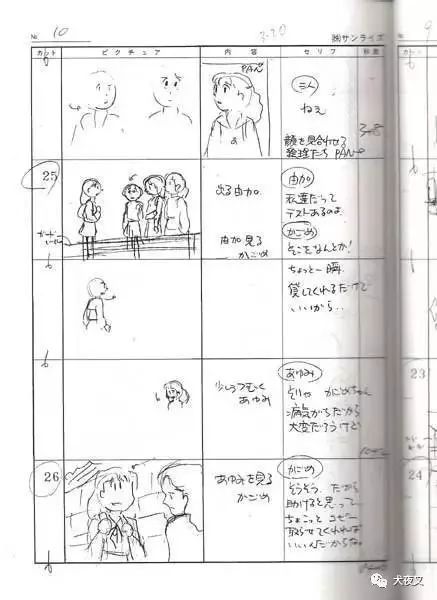 No. 10
3.20
㈱サンライズ
カット
ピクチュア
内容
セリフ
秒数
PAN
三人
ねぇ
顔を見合わせる
絵理たち PAN
3+8
25
ガードレール
出る由加
由加見る
かごめ
由加
私達だって
テストあるのよ
かごめ
そこをなんとか!
ちょっと一瞬
貸してくれるだけで
いいから‥
少しうつむく
あゆみ
あゆみ
そりゃ かごめちゃん
病気がちだから
大変だろうけど
26
あゆみを見る
かごめ
かごめ
そうそう だから
助けると思って
ちょこっと コピー
取らせてくれれば
いいんだからな。
9
23
24
犬夜叉